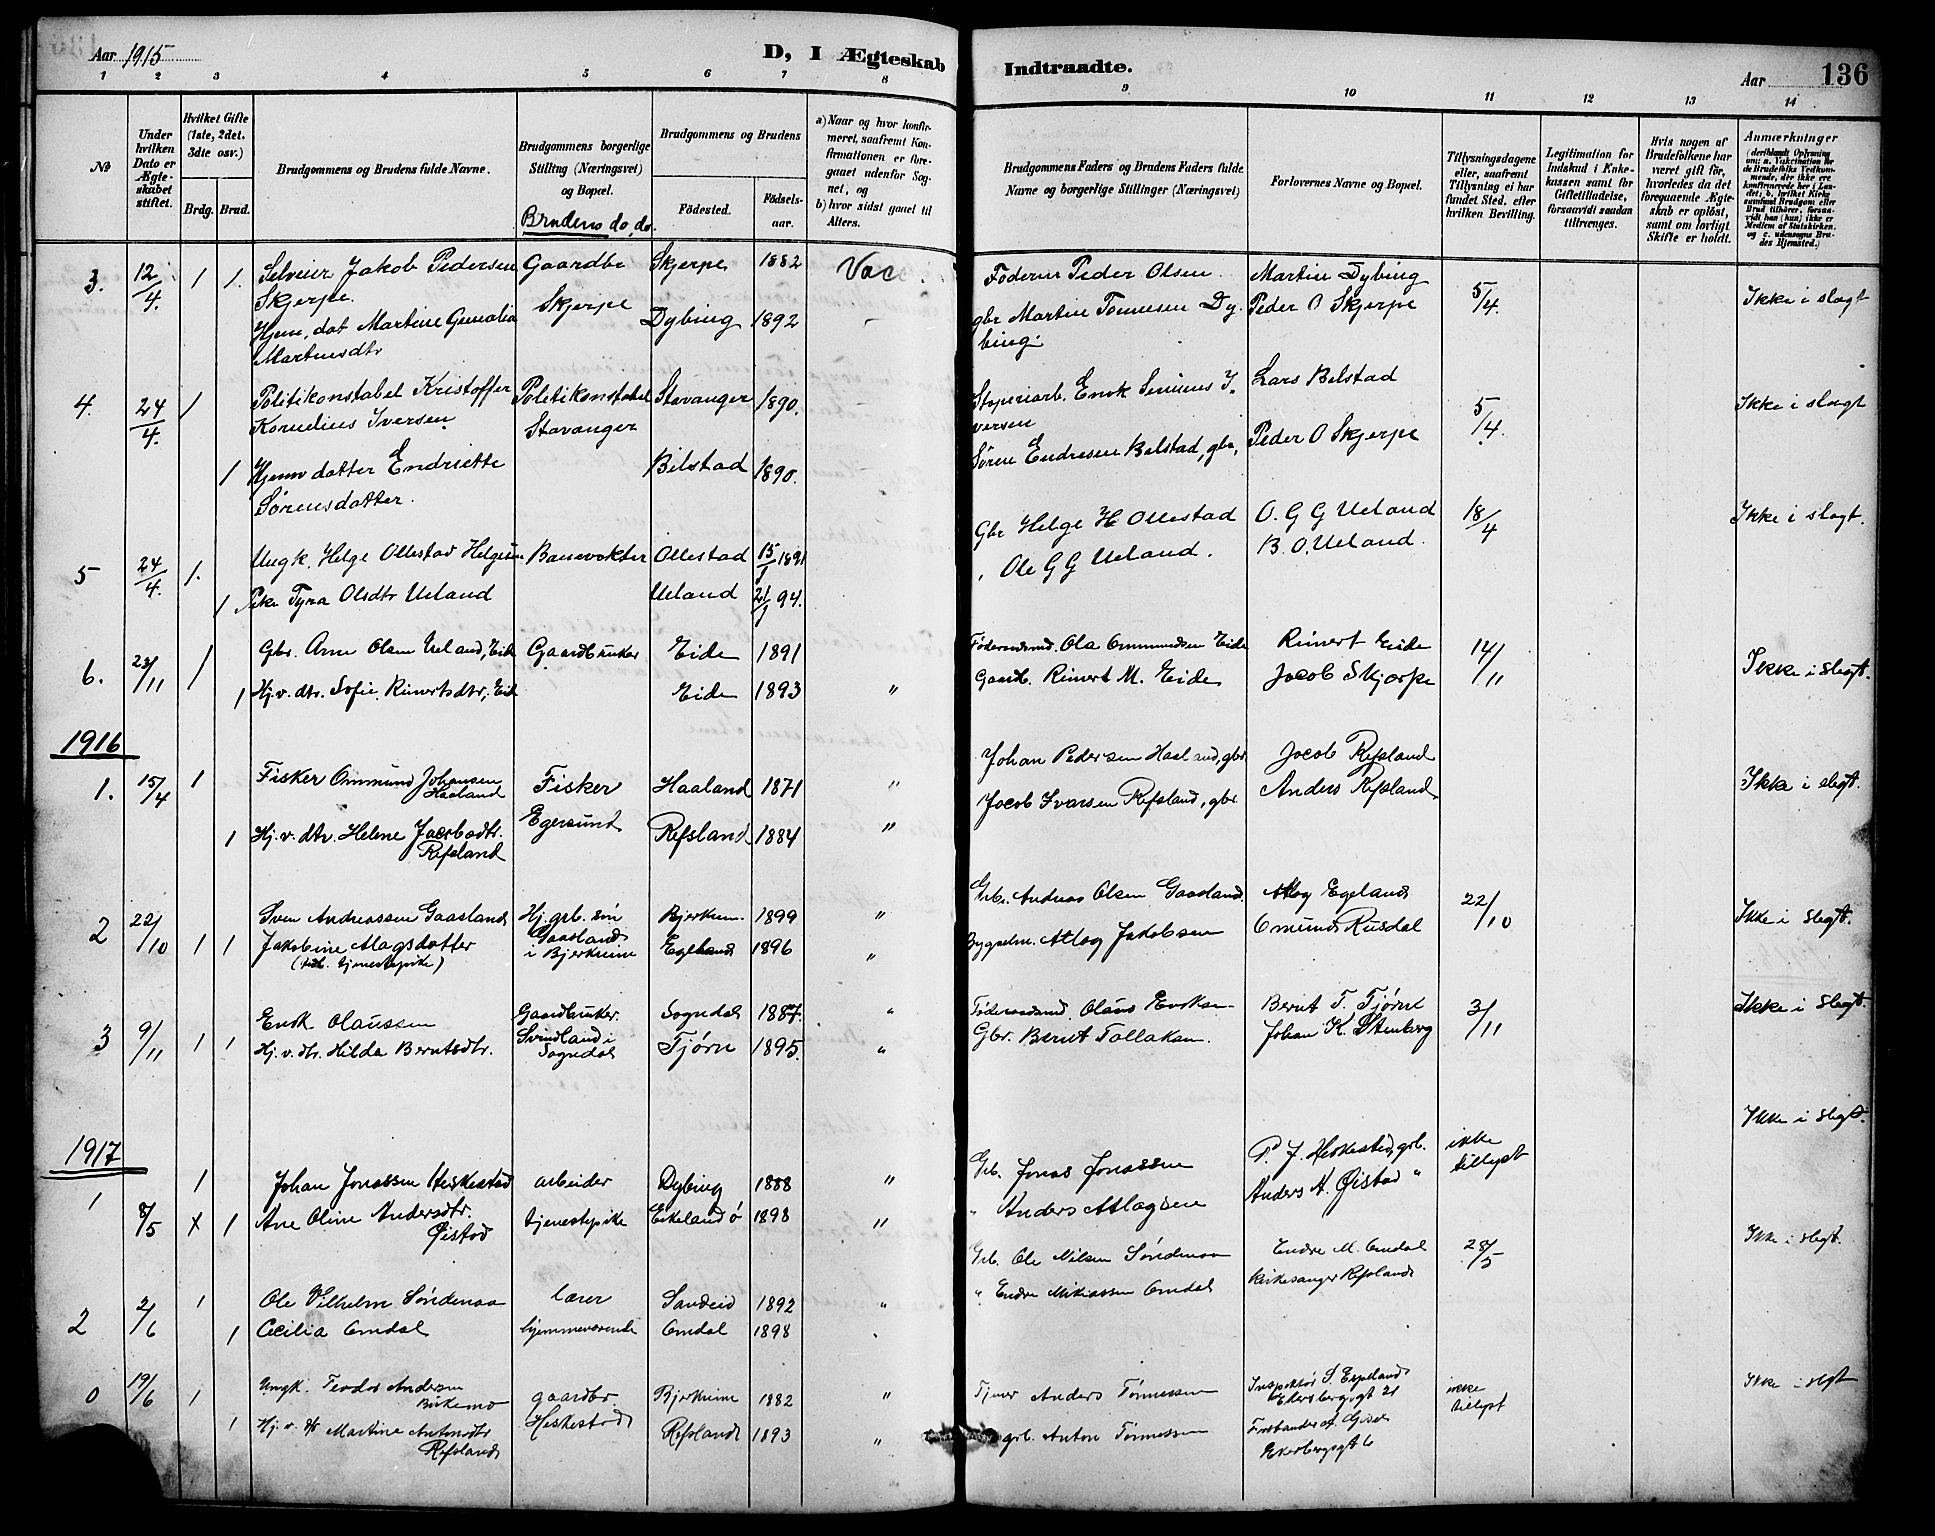 Aar 1915
D, I Ægteskab Indtraadte.
Aar 136
1 2 3 4 5 6 7 8 9 10 11 12 13 14
№
Under hvilken Dato er Ægteskabet stiftet.
Hvilket Gifte (1ste, 2det, 3die osv.)
Brdg. Brud.
Brudgommens og Brudens fulde Navne.
Brudgommens borgerlige Stilling (Næringsvei) og Bopæl.
Brudens do, do.
Brudgommens og Brudens
Fødested.
Fødselsaar.
a) Naar og hvor konfirmeret, saafremt Konfirmationen er foregaaet udenfor Sognet, og
b) hvor sidst gaaet til Alters.
Brudgommens Faders og Brudens Faders fulde Navne og borgerlige Stillinger (Næringsvei)
Forlovernes Navne og Bopæl.
Tillysningsdagene eller, saafremt Tillysning ei har fundet Sted, efter hvilken Bevilling.
Legitimation for Indskud i Enkekassen samt for Giftetilladelse, forsaavidt saadan tiltrænges.
Hvis nogen af Brudefolkene har været gift før, hvorledes da det foregaaende Ægteskab er opløst, samt om lovligt Skifte er holdt.
Anmærkninger
3. 12/4. 1 1. Selveier Jakob Pedersen Gaardbr Skjerpe 1882 Vacc. Føderm Peder Olsen. Martin Dybing 5/4. Ikke i slægt
Skjerpe. Skjerpe
Hjem. dat Martine Gunalia Dybing 1892 gbr Martin Tønnesen Dy- Peder O Skjerpe
Martinsdtr bing.
4. 24/4. 1 Politikonstabel Kristoffer Politikonstabel Stavanger 1890. Enok Iversen Lars Belstad 5/4. Ikke i slægt
Kornelius Iversen Stavanger
1 Hjemv datter Endriette Bilstad 1890. Søren Endresen Belstad, gbr, Peder O Skjerpe
Sørensdatter.
5 24/4. 1. Ungk. Helge Ollestad Helgesen Banevokter Ollestad 15/1 1891 Gbr Helge H Ollestad O. G G Ueland 18/4 Ikke i slægt.
1 Pike Tyra Olsdtr Ueland Ueland 21/1 94. " Ole G G Ueland. B. O. Ueland.
6. 23/11 1 Gbr. Arne Olsen Ueland, Eide Gaardbruker Eide 1891 Føderaadsmd. Ola Ommundsen Eide Rinert Eide 14/11 Ikke i slegt.
1 Hj. v. dtr. Sofie Rinertsdtr, Eide Eide 1893 " Gaardb. Rinert M. Eide Jacob Skjærpe
1916
1. 15/4 1 Fisker Ommund Johansen Haaland Fisker Haaland 1871 " Johan Pedersen Haaland, gbr Jacob Refsland Ikke i slegt.
1 Hj. v. dtr. Helene Jacobsdtr. Refsland Egersund Refsland 1884 " Jacob Ivarsen Refsland, gbr. Anders Refsland.
2 22/10 1 1 Sven Andreassen Gaasland Hj. grb. søn Bjerkreim 1899 " Grb. Andreas Olsen Gaasland. Atlag Egeland 22/10 Ikke i slegt.
Jakobine Atlagsdatter Gaasland i Bjerkreim Egeland 1896 " Bygselm. Atlag Jakobsen Omund Rusdal
(tidl. tjenestepike)
3 9/11 1 1 Enok Olaussen Gaardbruker Sogndal 1887. " Føderaadsmd. Olaus Enoksen Bernt T. Tjørn 3/11 Ikke i slegt.
Hj. v. dtr. Hilda Berntsdtr. Svindland i Sogndal Tjørn 1895. " Gbr. Bernt Tollaksen. Johan K. Stenberg
1917
1 8/5 1 Johan Jonassen Heskestad arbeider Dybing 1888 " Grb. Jonas Jonassen P. J. Heskestad, grb. ikke tillyst Ikke i slegt.
X 1 Ane Oline Andersdtr. Øistad tjenestepike Eikeland ø 1898 " " Anders Atlagsen Anders A. Øistad "
2 2/6 1 Ole Vilhelm Søndenaa lærer Sandeid 1892 " Grb. Ole Nilsen Søndenaa Endre M. Omdal 28/5 Ikke i slegt.
1 Cecilia Omdal hjemmeværende Omdal 1898 " " Endre Mikassen Omdal Kirkesanger Refsland
0 19/6 1 Ungk. Teodor Andersen Birkemo gaardbr. Bjerkreim 1882 " Anders Tønnessen Inspektør S. Espeland Ekersbergsgt 21 ikke tillyst Ikke i slegt
1 Hj. v. dtr Martine Antonsdtr Refsland Heskestad Refsland 1893 " grb. Anton Tønnessen Forstander Ekersbergsgt 6